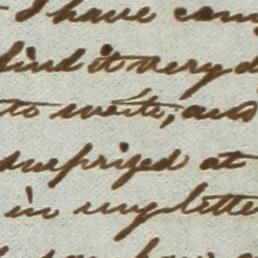 I have com
find it very d
to write, and
surprized at
in my lette